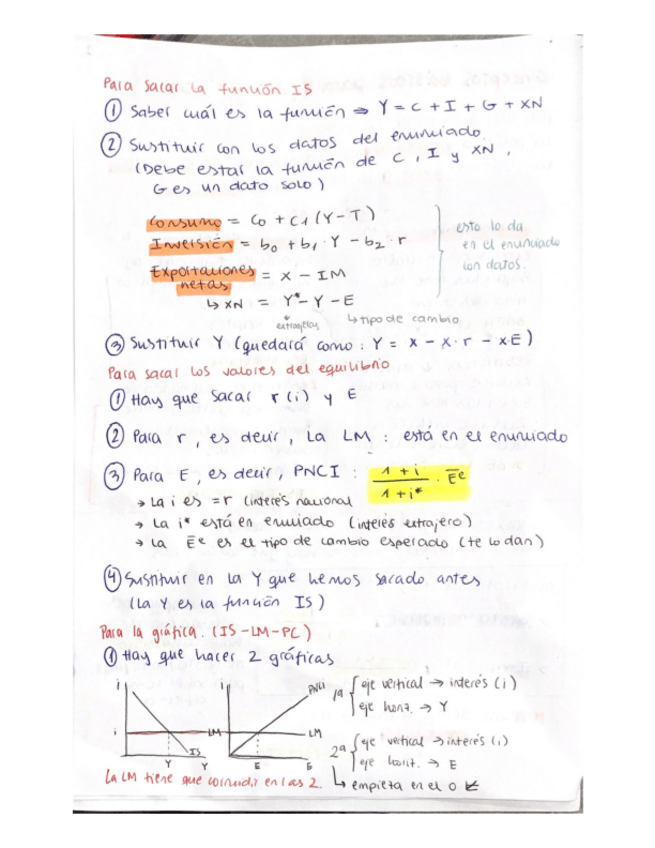 Para sacar la función IS
① Saber cuál es la función ⇒ Y = C + I + G + XN
② Sustituir con los datos del enunciado.
(Debe estar la función de C, I y XN,
G es un dato solo)
Consumo = C0 + C1 (Y - T)
Inversión = b0 + b1 · Y - b2 · r
Exportaciones netas = X - IM
↳ XN = Y* - Y - E
extranjero ↳ tipo de cambio
esto lo da
en el enunciado
con datos.
③ Sustituir Y (quedará como: Y = x - x · r - xE)
Para sacar los valores del equilibrio
① Hay que sacar r (i) y E
② Para r, es decir, la LM : está en el enunciado
③ Para E, es decir, PNCI : 1 + i / 1 + i* · Ēe
→ La i es = r (interés nacional
→ La i* está en enuciado (interés extrajero)
→ La Ēe es el tipo de cambio esperado (te lo dan)
④ Sustituir en la Y que hemos sacado antes
(La Y es la función IS)
Para la gráfica. (IS-LM-PC)
① Hay que hacer 2 gráficas
i i PNCI
i LM LM
IS
Y Y E E
1a { eje vertical → interés (i)
eje horiz. → Y
2a { eje vertical → interés (i)
eje horit. → E
↳ empieza en el 0
La LM tiene que coincidir en las 2.